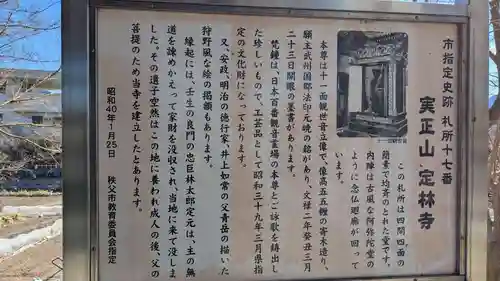 市指定史跡 札所十七番
実正山 定林寺
この札所は四間四面の
簡素で均斉のとれた堂です。
内陣は古風な阿弥陀堂の
ように念仏廻廊が回って
います。
本尊は十一面観世音立像で、像高五五糎の寄木造り、
願主武州国郡法印元暁の銘があり、文禄二年癸丑三月
二十三日開眼の墨書があります。
梵鐘は、日本百番観音霊場の本尊とご詠歌を鋳出し
た珍しいもので、工芸品として昭和三十九年三月県指
定の文化財になっております。
又、安政、明治の徳行家、井上如常の父青岳の描いた
狩野風な絵の掲額もあります。
縁起には、壬生の良門の忠臣林太郎定元は、主の無
道を諌めかえって家財を没収され、当地に来て没しま
した。その遺子空然はこの地に養われ成人の後、父の
菩提のため当寺を建立したとあります。
昭和40年1月25日 秩父市教育委員会指定